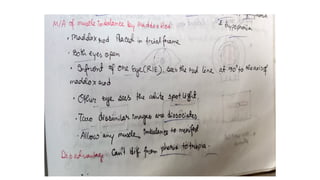 M/A of muscle Imbalance by Maddox Rod:
Ē hyperphoria
• Maddox rod Placed in trial frame
• Both eyes open
• Infront of one Eye (R/E), sees the red line at 90° to the axis of
maddox rod
• Other eye sees the white spot light
• Two dissimilar images are dissociates
• Allows any muscle Imbalance to manifest
Disadvantage: Can't diff from phoria to tropia.